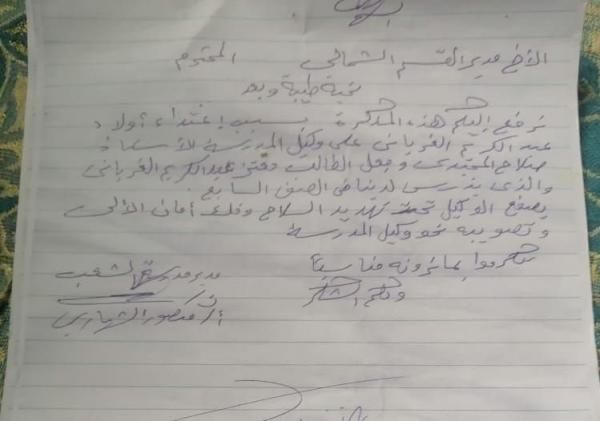 الأخ مدير القسم الشمالي المحترم
تحية طيبة وبعد
نرفع إليكم هذه المذكرة بسبب إعتداء أولاد
عبدالكريم الغرباني على وكيل المدرسة الأستاذ
صلاح المحتدي وجعل الطالب عبدالكريم الغرباني
والذي يدرس لدينا في الصف السابع
يصفع الوكيل تحت تهديد السلاح وفك أمان الآلي
وتصويبه نحو وكيل المدرسة
تكرموا بما ترونه مناسباً
ولكم الشكر
مدير مدرسة الشعب
أ/ منصور